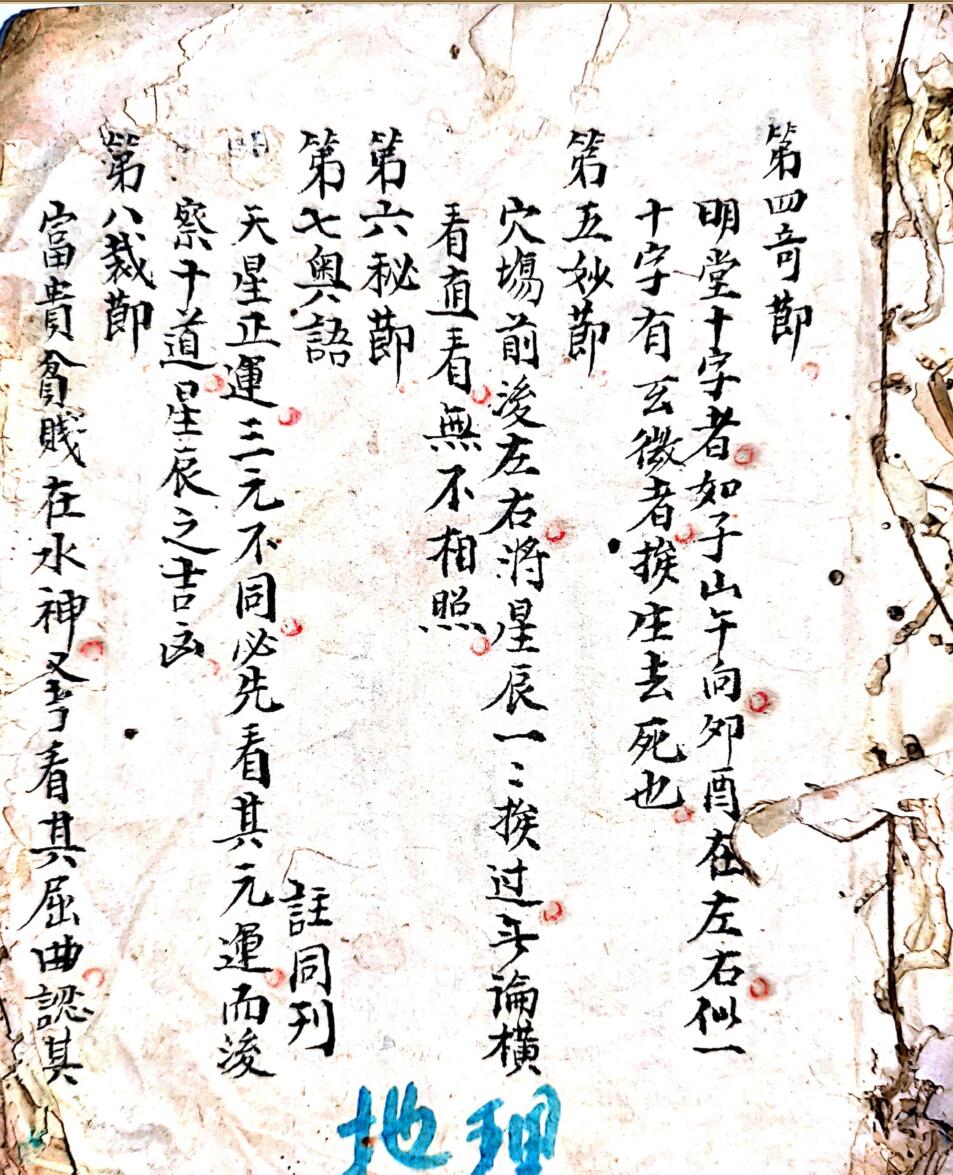 第四竒莭
明堂十字者如子山午向夘酉在左右似一
十字有玄微者挨生去死也
第五妙莭
穴場前後左右將星辰一〻挨过無論横
看直看無不相照
第六秘莭
第七奥語
註同刋
天星正運三元不同必先看其元運而後
察十道星辰之吉凶
第八裁莭
富貴貧賤在水神 看其屈曲認其
地理